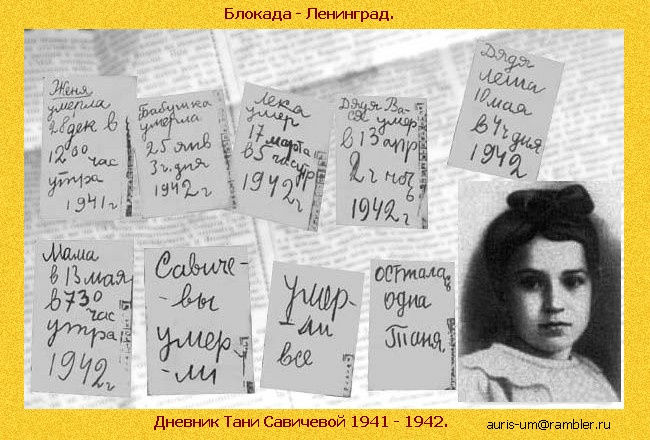 Блокада - Ленинград.
Женя
умерла
28 дек в
12 00 час
утра
1941 г
Бабушка
умерла
25 янв
3 ч. дня
1942 г
Лека
умер
17 марта
в 5 час утр
1942 г
Дядя Ва-
ся умер
в 13 апр
2 ч ночь
1942 г
Дядя
Леша
10 мая
в 4 ч дня
1942
Мама
в 13 мая
в 7 30
час
утра
1942 г
Савиче-
-вы
умер-
-ли
умер-
-ли
все
осталась
одна
Таня
Дневник Тани Савичевой 1941 - 1942.
auris-um@rambler.ru